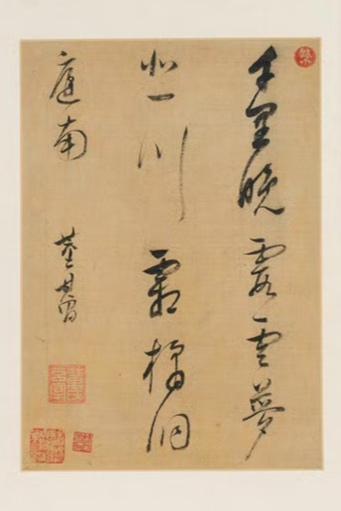 千里晚霞雲夢
北一川霜橘洞
庭南
董其昌